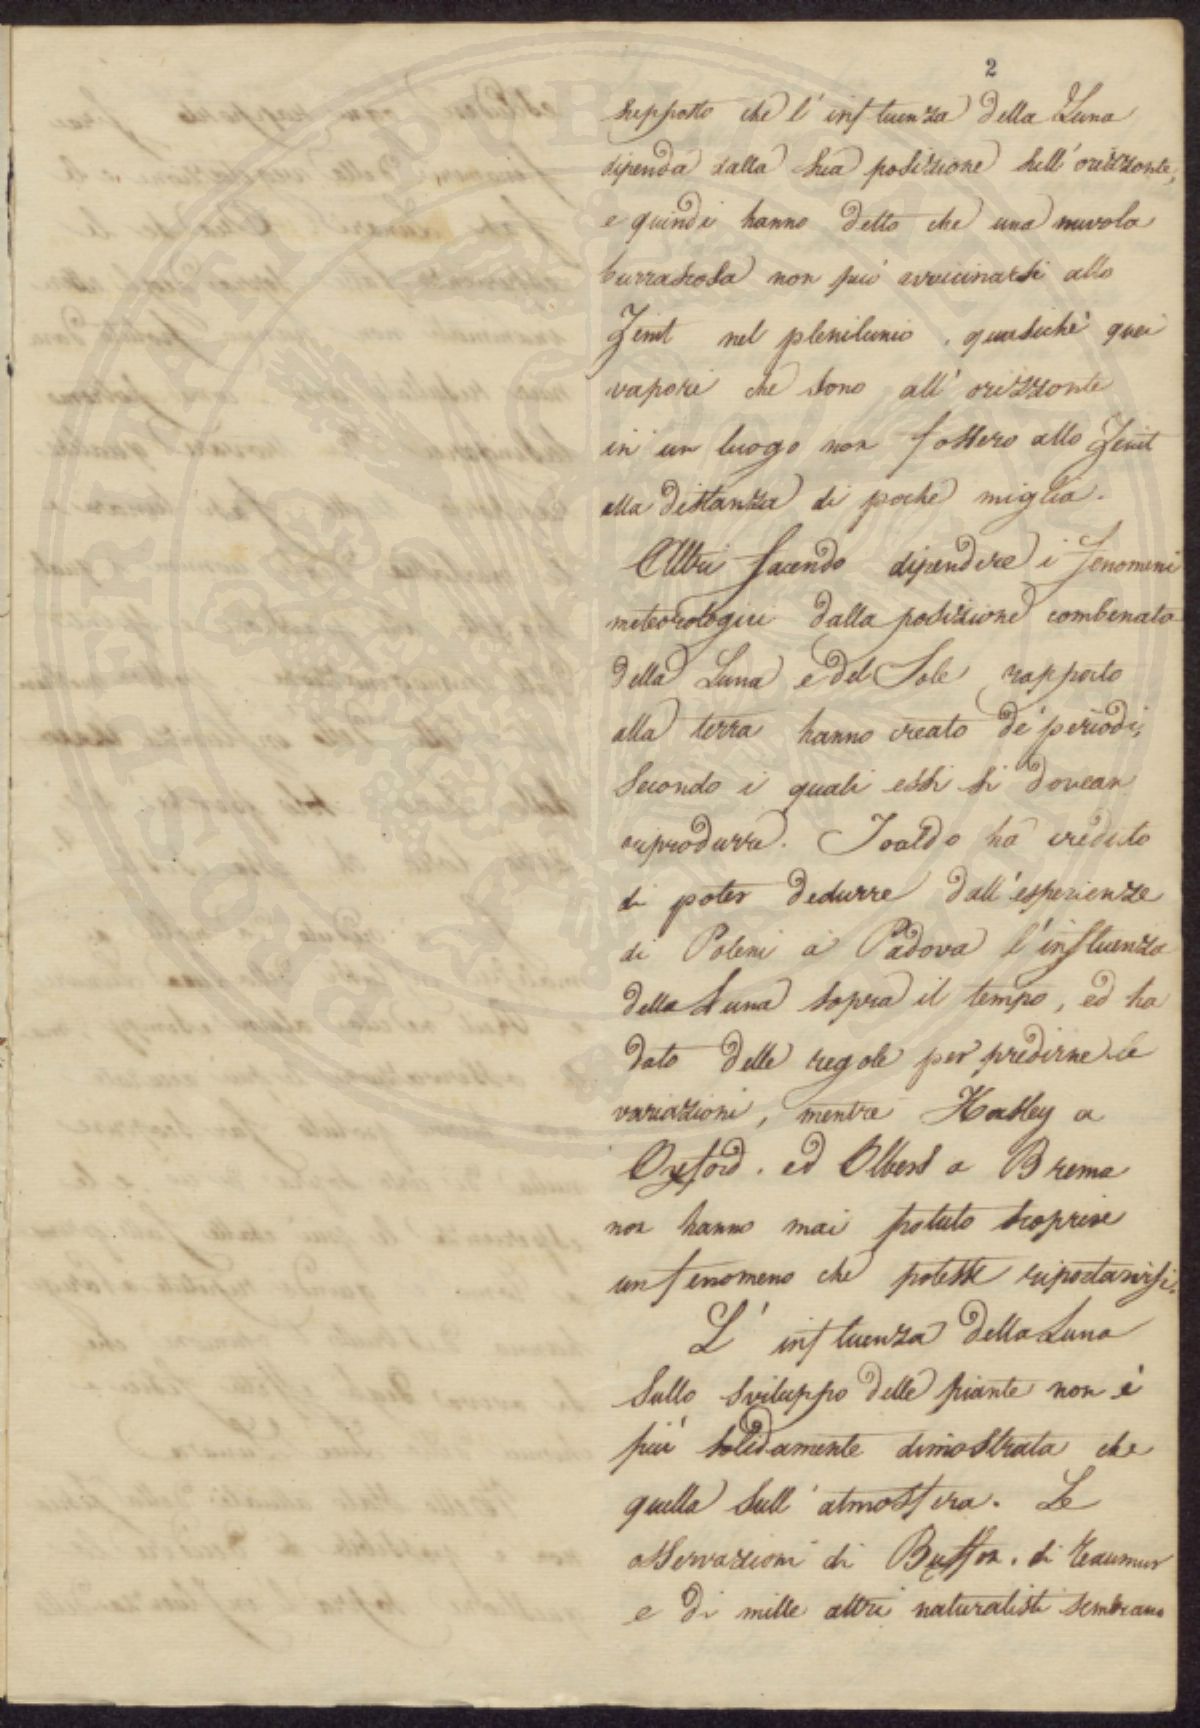 2
supposto che l'influenza della Luna
dipenda dalla sua posizione sull'orizzonte,
e quindi hanno detto che una nuvola
burrascosa non può avvicinarsi allo
Zenit nel plenilunio, quasichè quei
vapori che sono all'orizzonte
in un luogo non fossero allo Zenit
alla distanza di poche miglia.
Altri facendo dipendere i fenomeni
meteorologici dalla posizione combinata
della Luna e del Sole rapporto
alla terra hanno creato de' periodi,
secondo i quali essi si dovean
riprodurre. Toaldo ha creduto
di poter dedurre dall'esperienze
di Poleni a Padova l'influenza
della Luna sopra il tempo, ed ha
dato delle regole per predirne le
variazioni, mentre Hasley a
Oxford, ed Olbers a Brema
non hanno mai potuto scoprire
un fenomeno che potesse riportarvisi.
L'influenza della Luna
sullo sviluppo delle piante non è
più solidamente dimostrata che
quella sull'atmosfera. Le
osservazioni di Buffon, di Reaumur
e di mille altri naturalisti sembrano